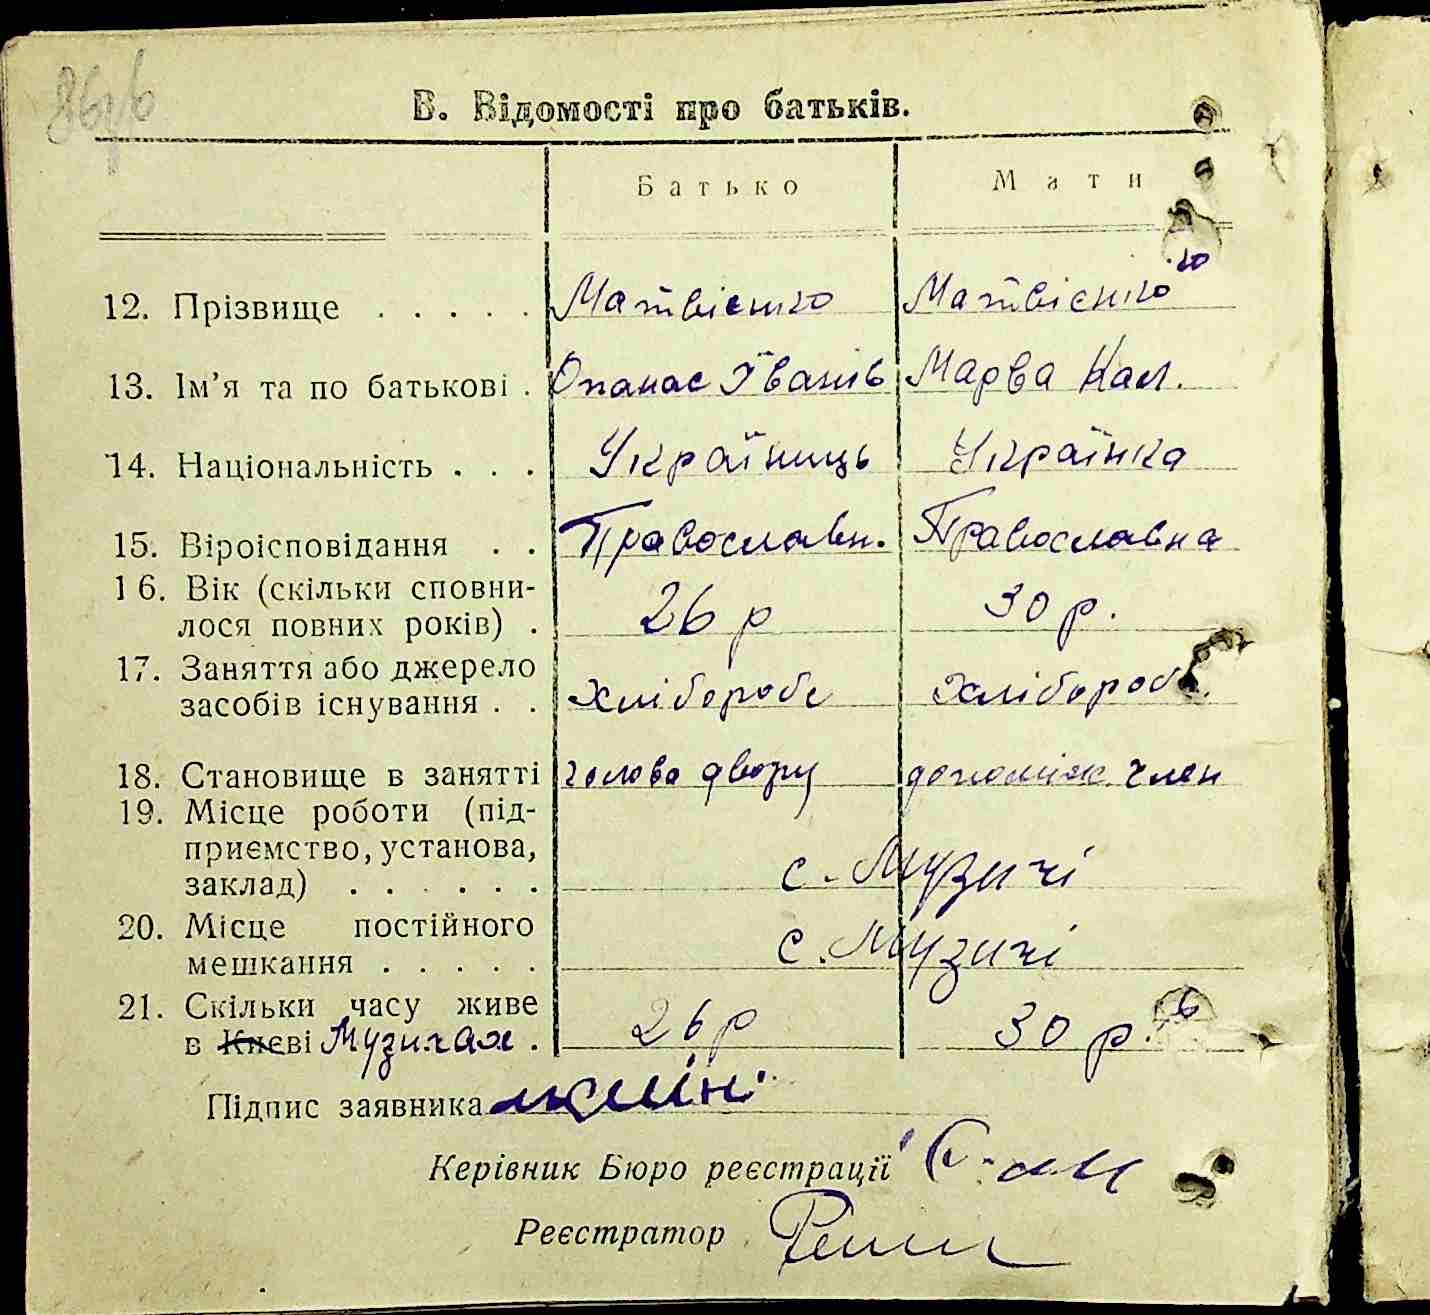 В. Відомості про батьків.
Батько Мати
12. Прізвище . . . . . Матвієнко Матвієнко
13. Ім’я та по батькові . Опанас Іванів Марва Кал.
14. Національність . . . Україниць Українка
15. Віроісповідання . . Православн. Православна
16. Вік (скільки сповни-
лося повних років) . 26 р 30 р.
17. Заняття або джерело
засобів існування . . Хліборобс Хлібороб
18. Становище в занятті голова двору допоміж. член
19. Місце роботи (під-
приємство, установа,
заклад) . . . . . . с. Музичі
20. Місце постійного
мешкання . . . . . с. Музичі
21. Скільки часу живе
в Києві Музичах . 26 р 30 р.
Підпис заявника
Керівник Бюро реєстрації
Реєстратор